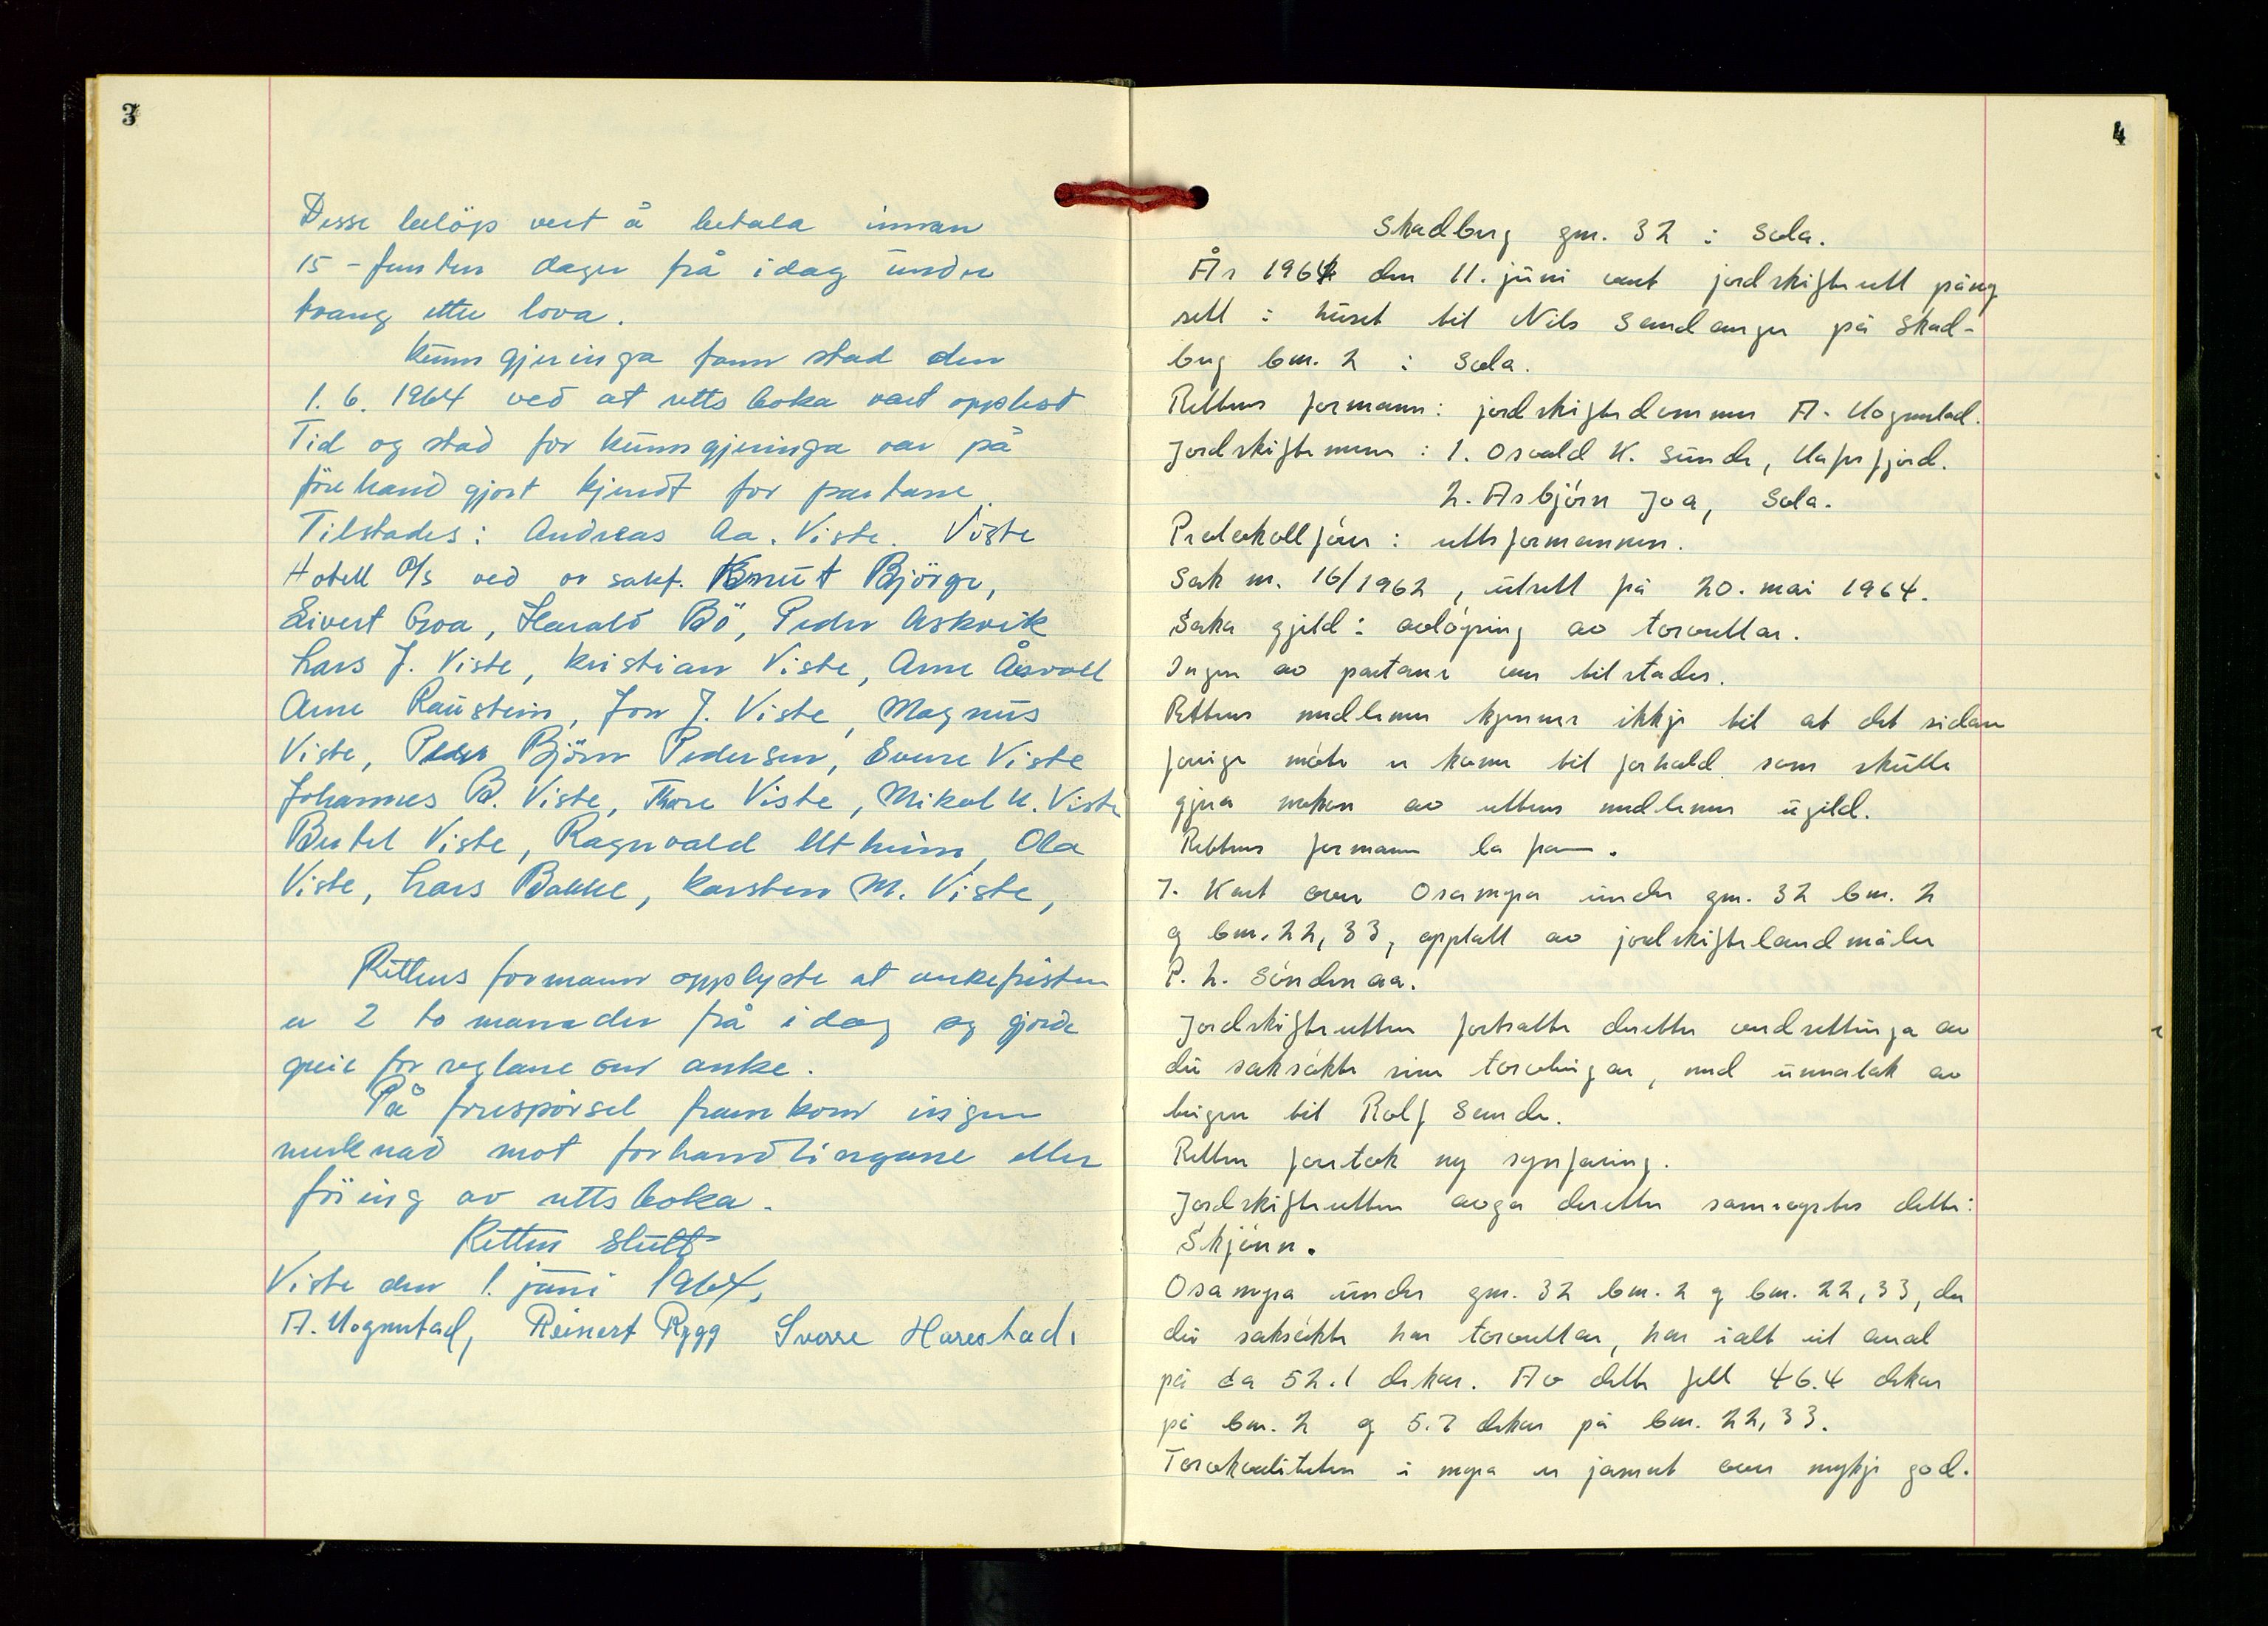 3
Desse beløp vert å betala innan
15-femten dager frå idag under
tvang etter lova.
Kunngjeringa fann stad den
1. 6. 1964 ved at rettsboka vart opplest
Tid og stad for kunngjeringa var på
förehand gjort kjendt for partane.
Tilstades: Andreas Aa. Viste. Viste
Hotell A/s ved or sakf. Knut Björge,
Sivert Goa, Harald Bö, Peder Askvik
Lars J. Viste, Kristian Viste, Arne Åsvoll
Arne Raustein, Jon J. Viste, Magnus
Viste, Peder Björn Pedersen, Sverre Viste
Johannes B. Viste, Thore Viste, Mikal K. Viste
Bertel Viste, Ragnvald Uthüm, Ola
Viste, Lars Bakke, Karsten M. Viste,
Rettens formann opplyste at ankefristen
er 2 to månader frå idag og gjorde
greie for reglane om anke.
På forespørsel framkom ingen
merknad mot forhandlingane eller
föring av rettsboka.
Retten slutt
Viste den 1. juni 1964,
A. Hognestad, Reinert Rygg Sverre Harestad.
4
Skadberg gnr. 32 i Sola.
År 1964 den 11. juni vart jordskifterett påny
sett i huset til Nils Sandanger på Skad-
berg bnr. 2 i Sola.
Rettens formann: jordskiftedommer A. Hognestad.
Jordskiftemenn: 1. Osvald K. Sunde, Hafrsfjord.
2. Asbjörn Joa, Sola.
Protokollförer: rettsformannen.
Sak nr. 16/1962, utsett frå 20. mai 1964.
Saka gjeld: avlöysing av torvrettar.
Ingen av partane var tilstades.
Rettens medlemer kjenner ikkje til at det sidan
forrige möte er kome til forhold som skulle
gjera noken av rettens medlemer ugild.
Rettens formann la fram.
7. Kart over Osamyra under gnr. 32 bnr. 2
og bnr. 22, 33, opptatt av jordskiftelandmåler
P. L. Söndenaa.
Jordskifteretten fortsatte deretter verdsettinga av
dei saksökte sine torvteigar, med unnatak av
teigen til Rolf Sande.
Retten foretok ny synfaring.
Jordskifteretten avga deretter samrøystes dette:
Skjönn.
Osamyra under gnr. 32 bnr. 2 og bnr. 22, 33, der
dei saksökte har torvrettar, har ialt eit areal
på ca 52.1 dekar. Av dette fell 46.4 dekar
på bnr. 2 og 5.7 dekar på bnr. 22, 33.
Torvkvaliteten i myra er jamnt over mykje god.